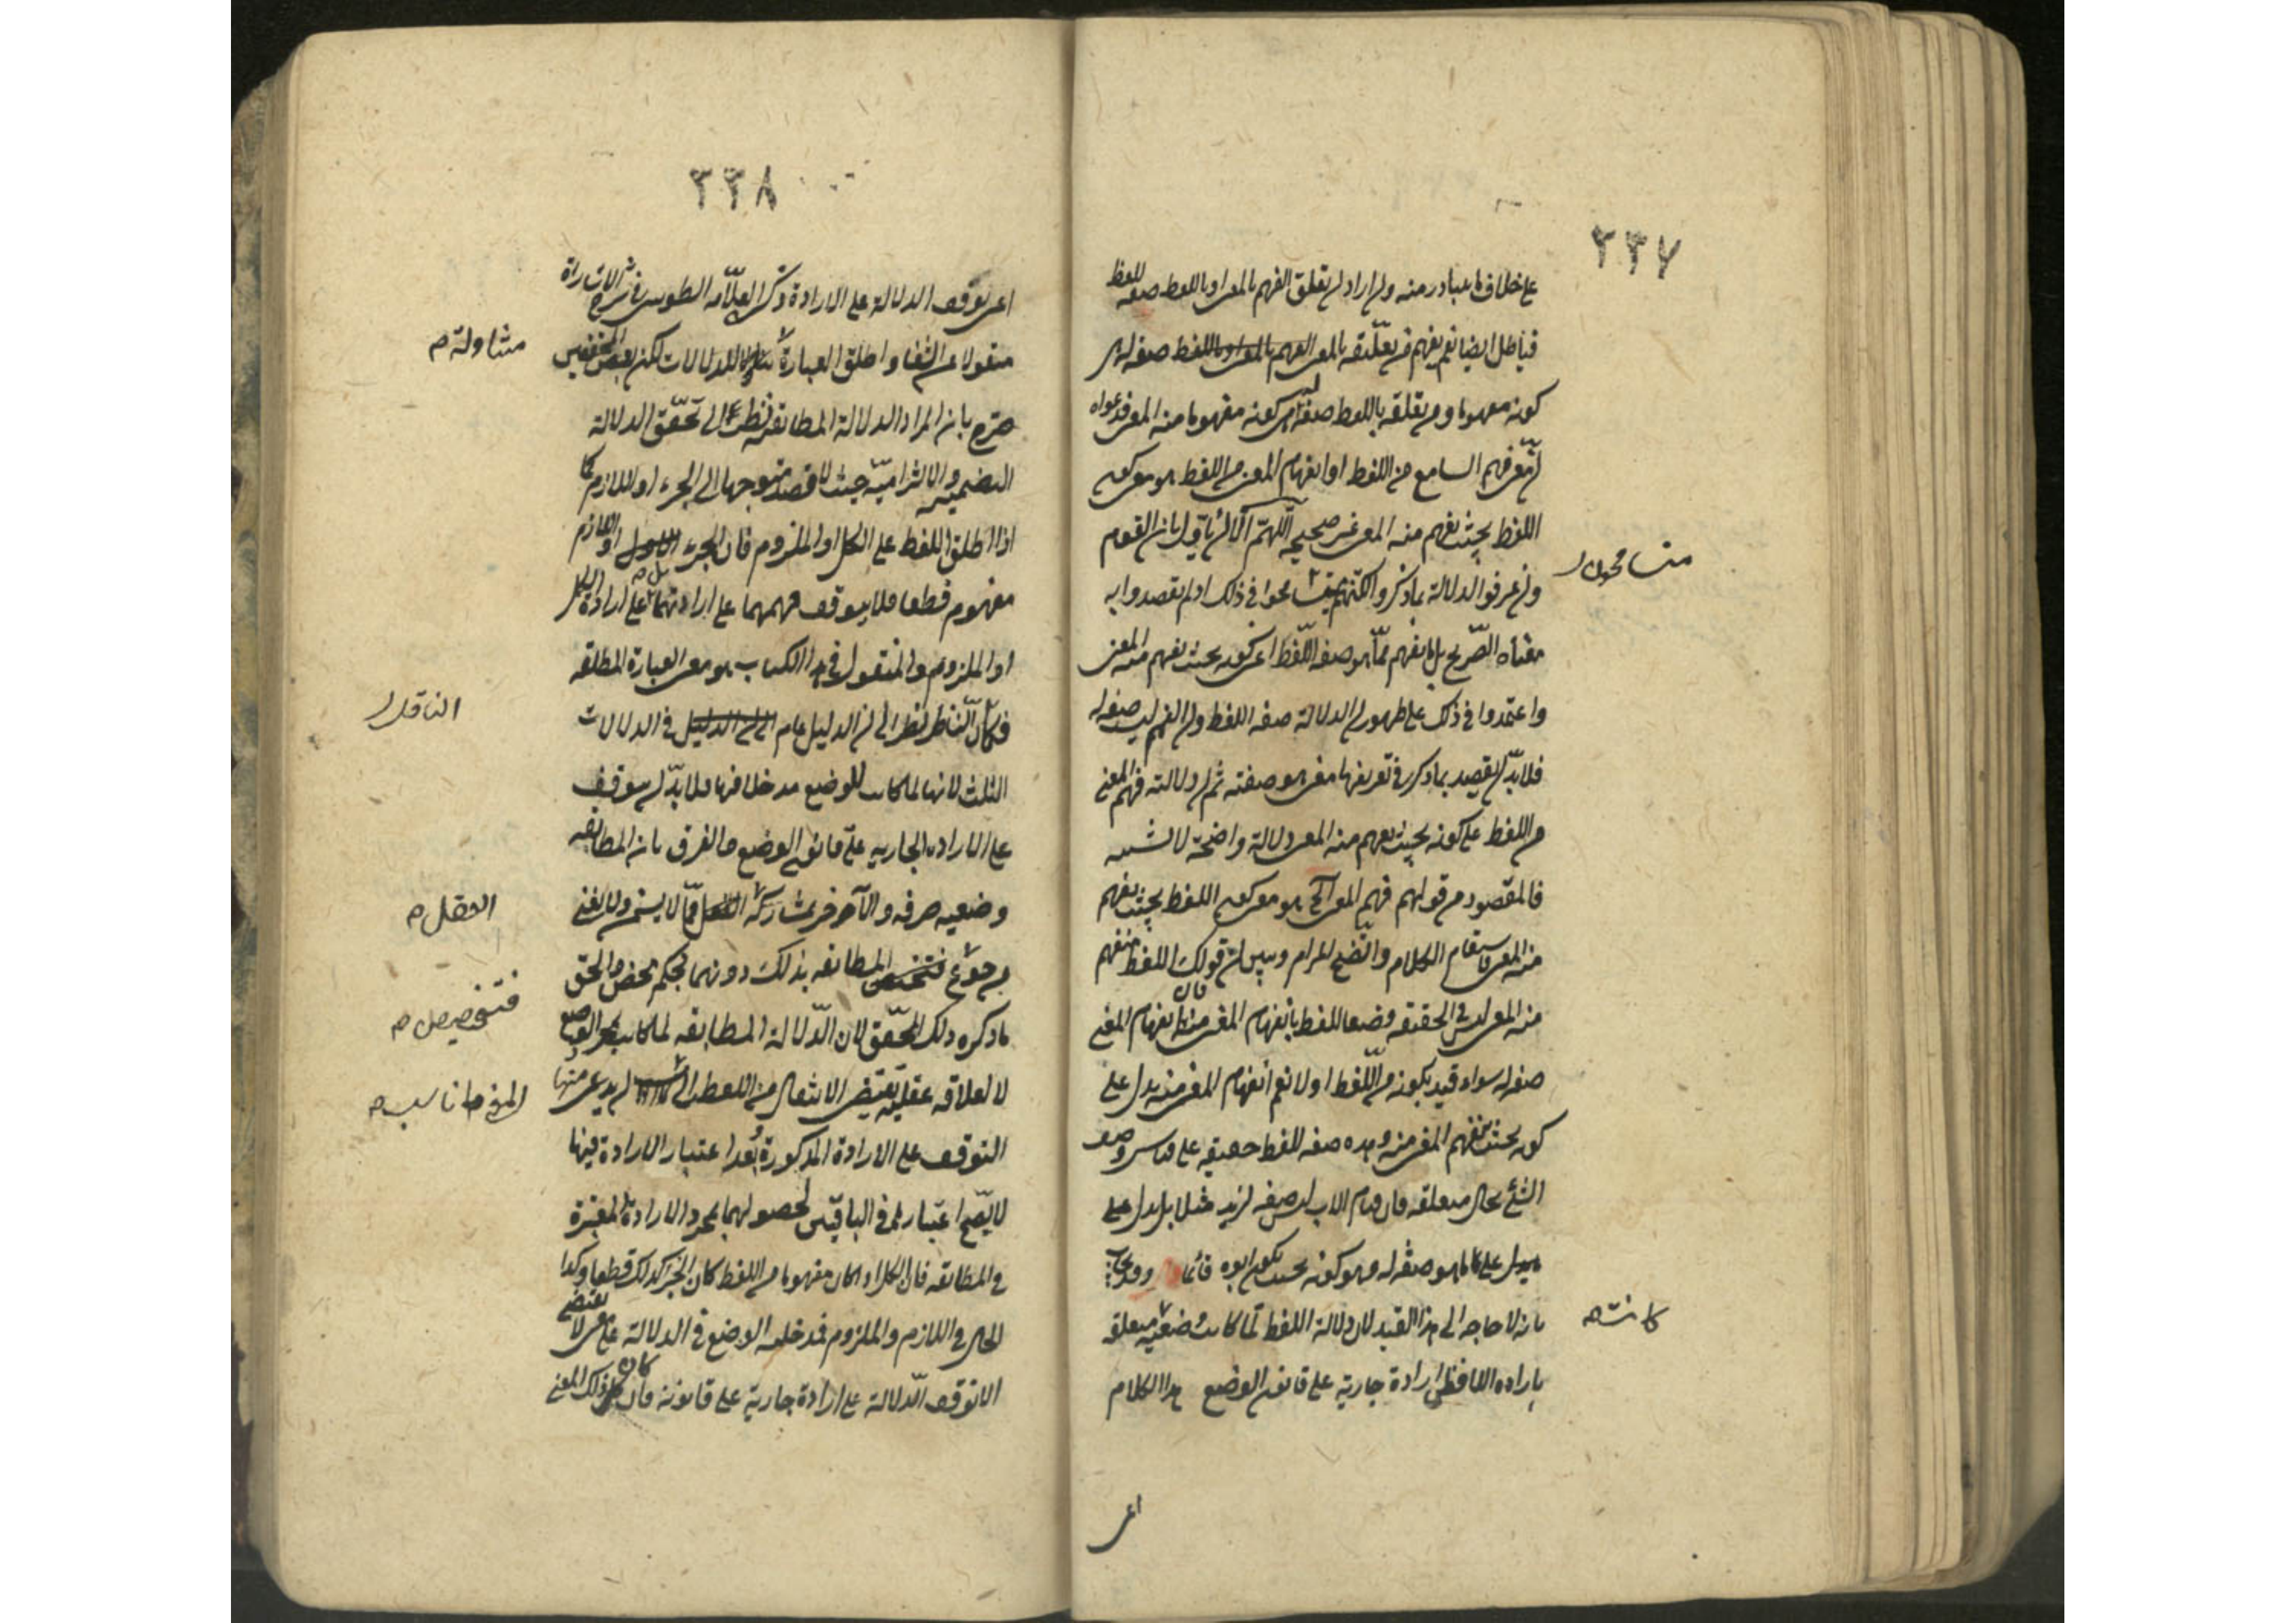 ٢٣٧
على خلاف ما يتبادر منه وان اراد ان تعلق الفهم بالمعنى او باللفظ صفة للفظ
فباطل ايضا نعم يفهم من تعلقه بالمعنى صفة له هى
كونه مفهوما ومن تعلقه باللفظ صفة له هى كونه مفهوما منه المعنى فدعواه
ان معنى فهم السامع من اللفظ او انفهام المعنى من اللفظ هو معنى كون
اللفظ بحيث يفهم منه المعنى غير صحيحة اللهم الا ان يأول بان القوم
وان عرفوا الدلالة بما ذكر ولكنهم يتسامحوا فى ذلك اذ لم يقصدوا به
معناه الصريح بل ما يفهم مما هو صفة اللفظ اعنى كونه بحيث يفهم منه المعنى
واعتمدوا فى ذلك على ظهور ان الدلالة صفة اللفظ وان الفهم ليس صفة له
فلا بد ان يقصد بما ذكر فى تعريفها معنى هو صفته ثم ان دلالته فهم المعنى
من اللفظ على كونه بحيث يفهم منه المعنى دلالة واضحة لا تشتبه
فالمقصود من قولهم فهم المعنى الخ هو معنى كون اللفظ بحيث يفهم
منه المعنى فاستقام الكلام واتضح المرام وتبين ان قولك اللفظ متفهم
منه المعنى ليس فى الحقيقة وصفا للفظ بانفهام المعنى منه فان انفهام المعنى
صفة له سواء قيد بكونه من اللفظ او لا نعم انفهام المعنى منه يدل على
كونه بحيث يفهم المعنى منه وهذه صفة للفظ حقيقة على قياس وصف
الشئ بحال متعلقه فان قيام الاب ليس صفة لزيد مثلا بل يدل على
ما هو صفة له وهو كونه بحيث يكون ابوه قائما وقد يجاب
بانه لا حاجة الى هذا القيد لان دلالة اللفظ لما كانت وضعية متعلقة
بارادة اللافظ ارادة جارية على قانون الوضع هذا الكلام
اعنى
متسامحون
كانت صح
٢٣٨
اعنى توقف الدلالة على الارادة ذكره العلامة الطوسى فى شرح الاشارات
منقولا عن الشفا واطلق العبارة للدلالات لكن بعض المحققين
صرح بان المراد الدلالة المطابقة نظرا الى تحقق الدلالة
التضمنية والالتزامية حيث لا قصد متوجها الى الجزء او اللازم كما
اذا اطلق اللفظ على الكل او الملزوم فان الجزء او اللازم
مفهوم قطعا فلا يتوقف فهمهما على ارادتهما بل على ارادة الكل
او الملزوم والمنقول فى هذا الكتاب هو معنى العبارة المطلقة
فكأن الناظر نظر الى ان الدليل عام فى الدلالات
الثلث لانها لما كانت للوضع مدخل فيها فلا بد ان يتوقف
على الارادة الجارية على قانون الوضع والفرق بان المطابقة
وضعية صرفة والآخر يشاركه مما لا يسمن ولا يغنى
من جوع المطابقة بذلك دونهما تحكم محض والحق
ما ذكره ذلك المحقق لان الدلالة المطابقة لما كانت بمجرد الوضع
لا لعلاقة عقلية تقتضى الانتقال من اللفظ الى ان يدعى فيها
التوقف على الارادة المذكورة وبعد اعتبار الارادة فيها
لا يتجه اعتبارها فى الباقيتين لحصولهما بمجرد الارادة المعتبرة
فى المطابقة فان الكل اذا كان مفهوما من اللفظ كان الجزء كذلك قطعا وكذا
الحال فى اللازم والملزوم فدخلية الوضع فى الدلالة على معنى لا تقتضى
الا توقف الدلالة على ارادة جارية على قانونه فان كان ذلك المعنى
متناولة صح
الناقل
العقل صح
فتخصيص صح
المعنى ناسب صح